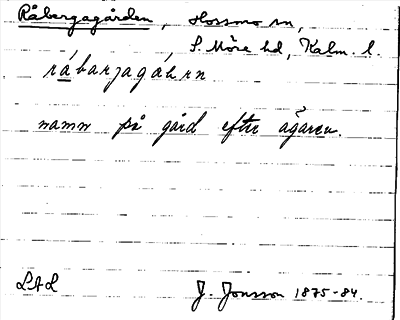 Råbergagården, Hossmo sn,
S. Möre hd, Kalm. l.
råbarjagáLrn
namn på gård efter ägaren.
LAL J. Jonsson 1875-84.